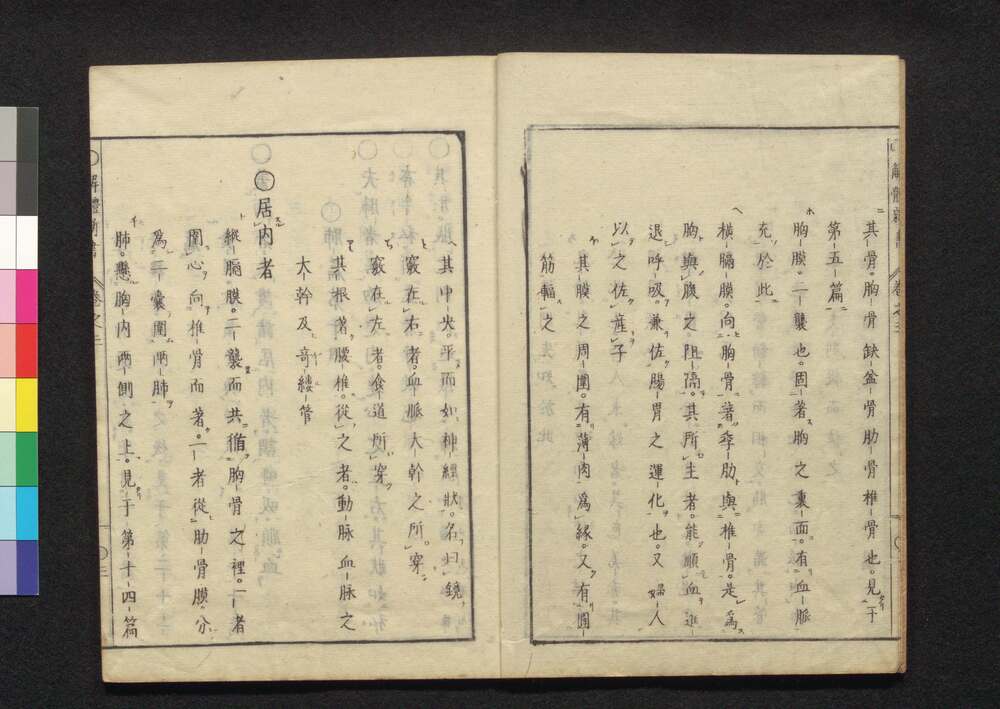 其骨。胸骨缺盆骨肋骨椎骨也。見于
第五篇
胸膜。二襲也。固著胸之裏面。有血脈
充於此
橫膈膜。向胸骨著季肋與椎骨。是爲
胸與腹之阻隔。其所主者。能順血進
退呼吸。兼佐腸胃之運化也。又婦人
以之佐產子
其膜之周圍。有薄肉爲緣。又有圓
筋輻之
其中央。平而如神經狀。名曰鏡
竅在右者。血脈大幹之所穿
竅在左者。食道所穿
其根著腰椎。從之者。動脈血脈之
大幹及奇縷管
○居內者
縱膈膜。二襲而共循胸骨之裡。一者
圍心。向椎骨而著。一者從肋骨膜。分
爲二囊。圍兩肺
肺。懸胸內兩側之上。見于第十四篇
○解體新書 卷之三 ○三